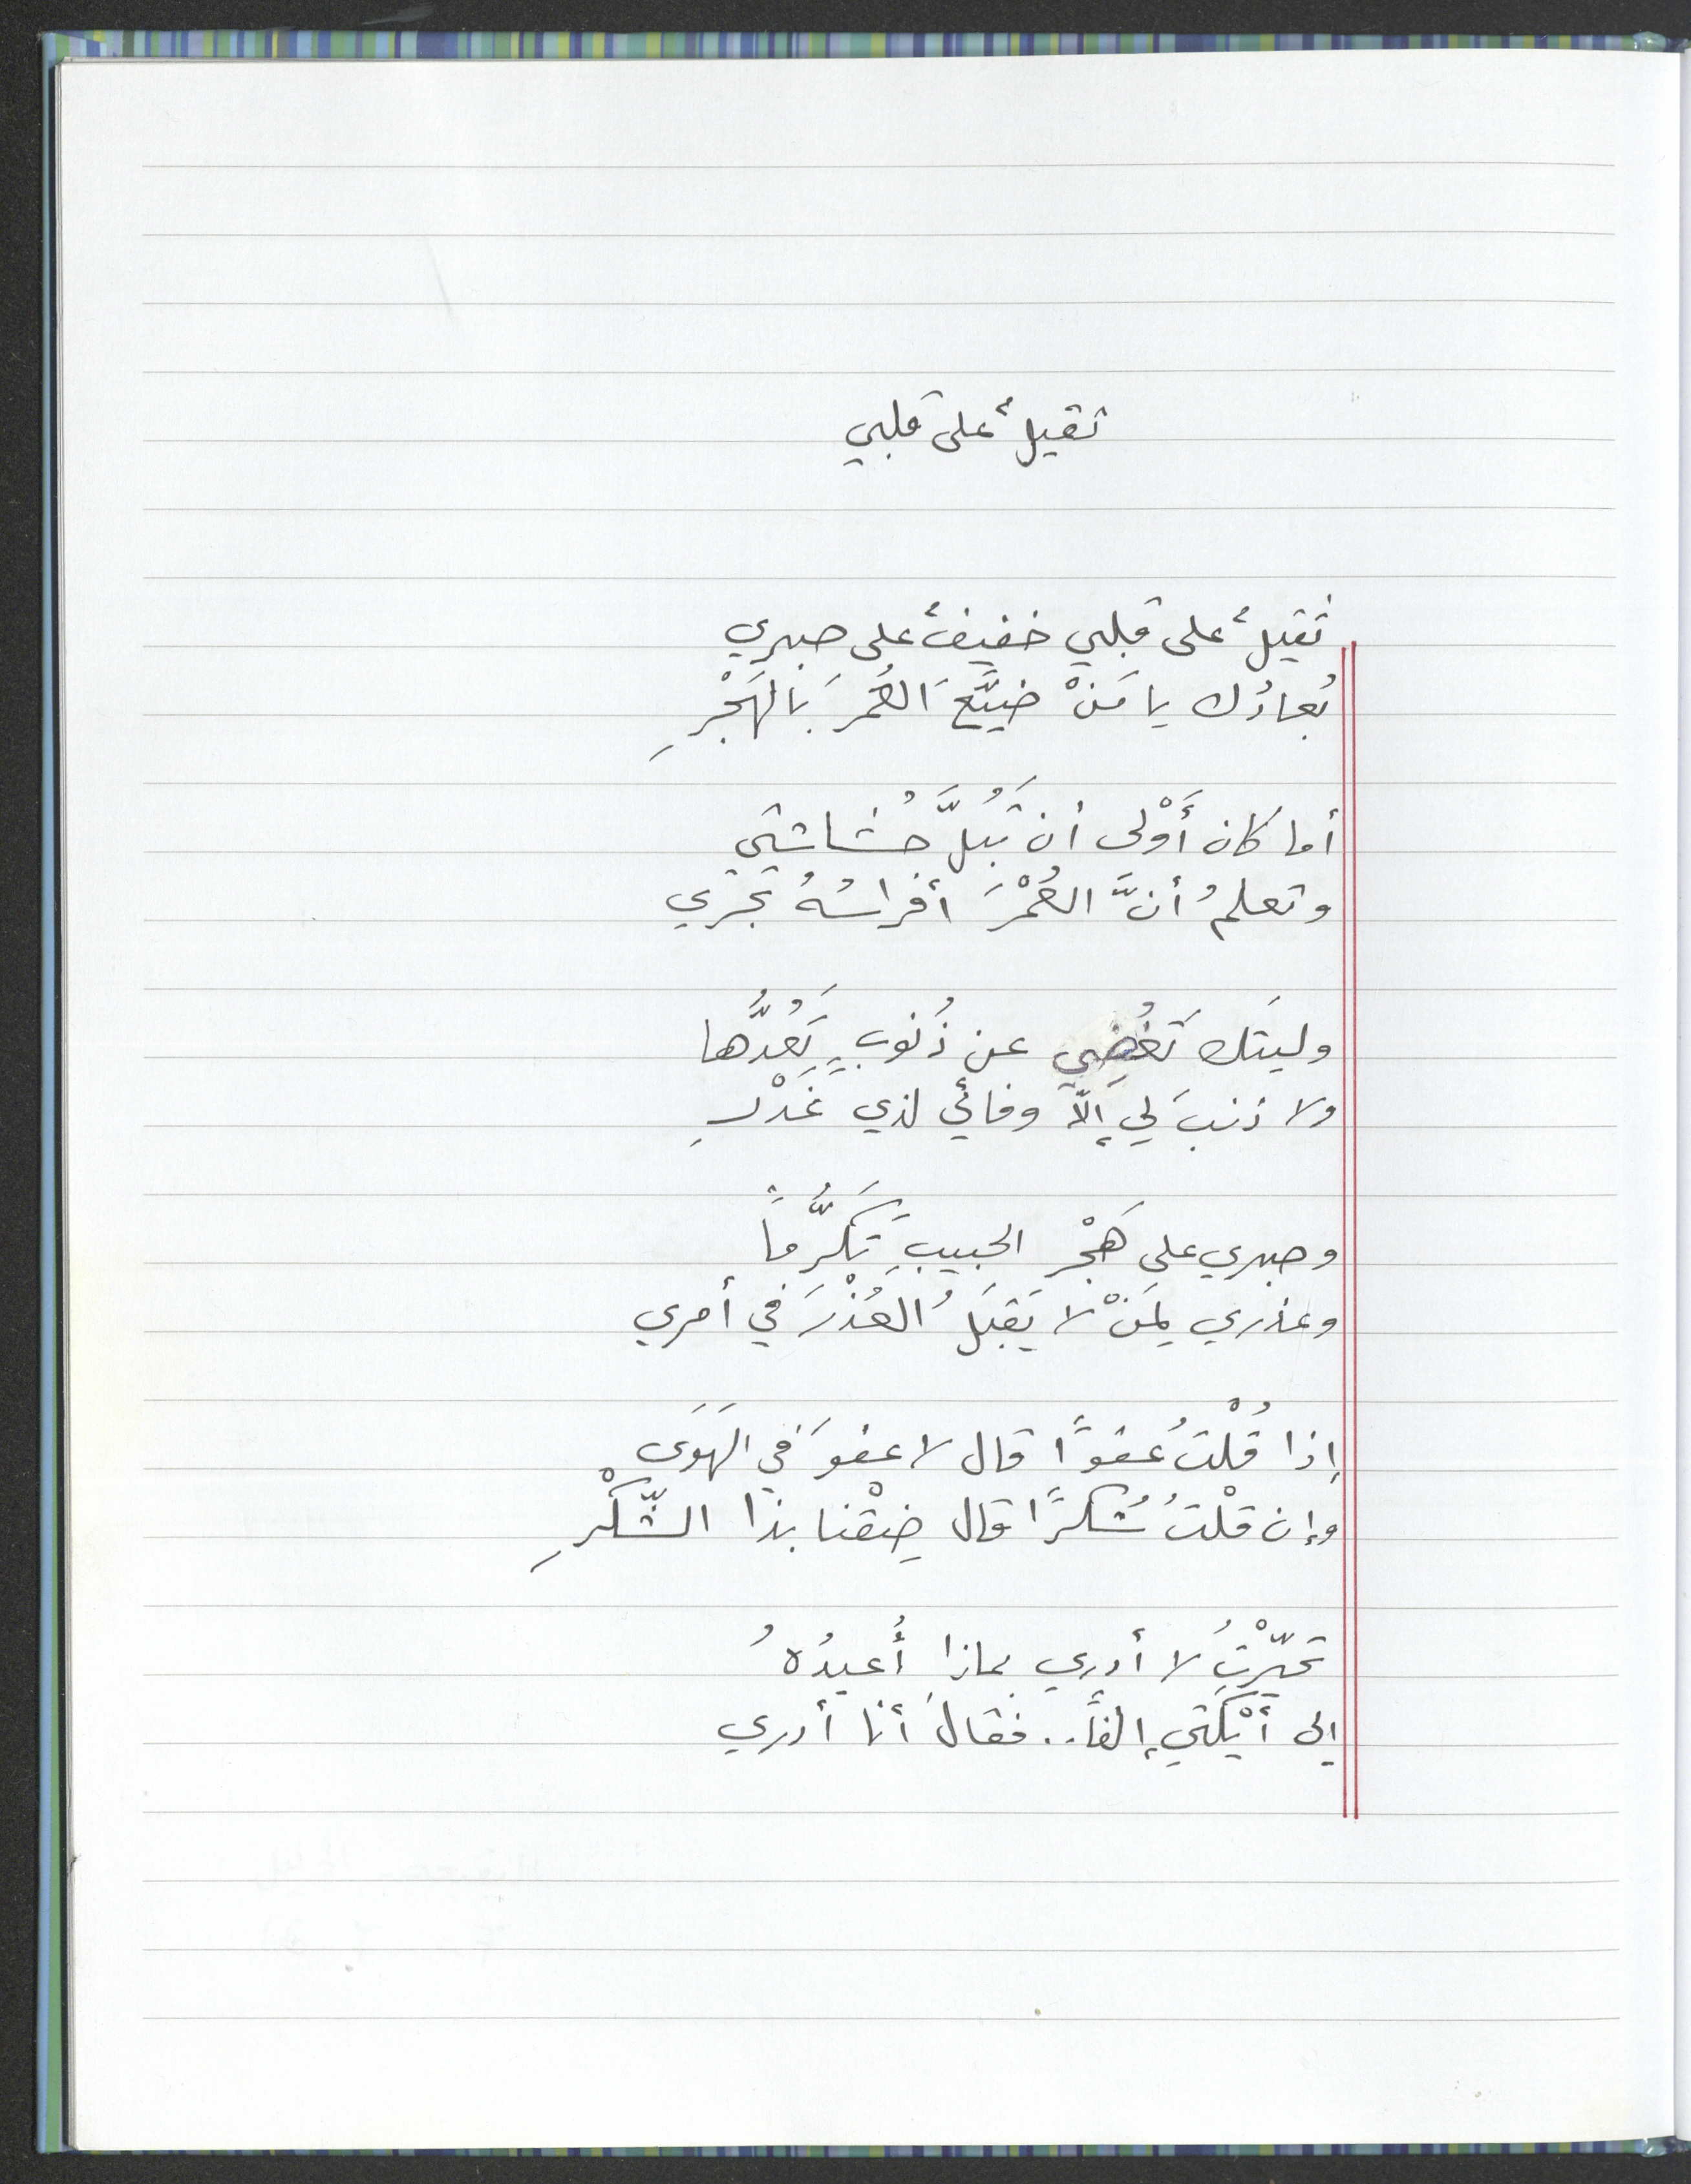 ثقيلٌ على قلبي
ثقيلٌ على قلبي خفيفٌ على صبري
بُعادُك يا مَنْ ضيَّعَ العُمرَ بالهَجْرِ
أما كان أَوْلى أن تَبُلَّ حُشاشتي
وتعلمُ أنَّ العُمْرَ أفراسُهُ تجري
وليتَك تُغْضِي عن ذُنوبٍ تَعُدُّها
ولا ذنبَ لي إلّا وفائي لذي غَدْرِ
وصبري على هَجْرِ الحبيبِ تَكَرُّماً
وعذري لِمَنْ لا يَقبَلُ العُذْرَ في أمري
إذا قُلْتُ عفوًا قال لا عفوَ في الهَوَى
وإن قلْتُ شُكرًا قال ضِقْنا بذا الشّكْرِ
تحيّرْتُ لا أدري بماذا أُعيدُهُ
إلى أَيْكَتي إلفاً.. فقالَ أنا أدري